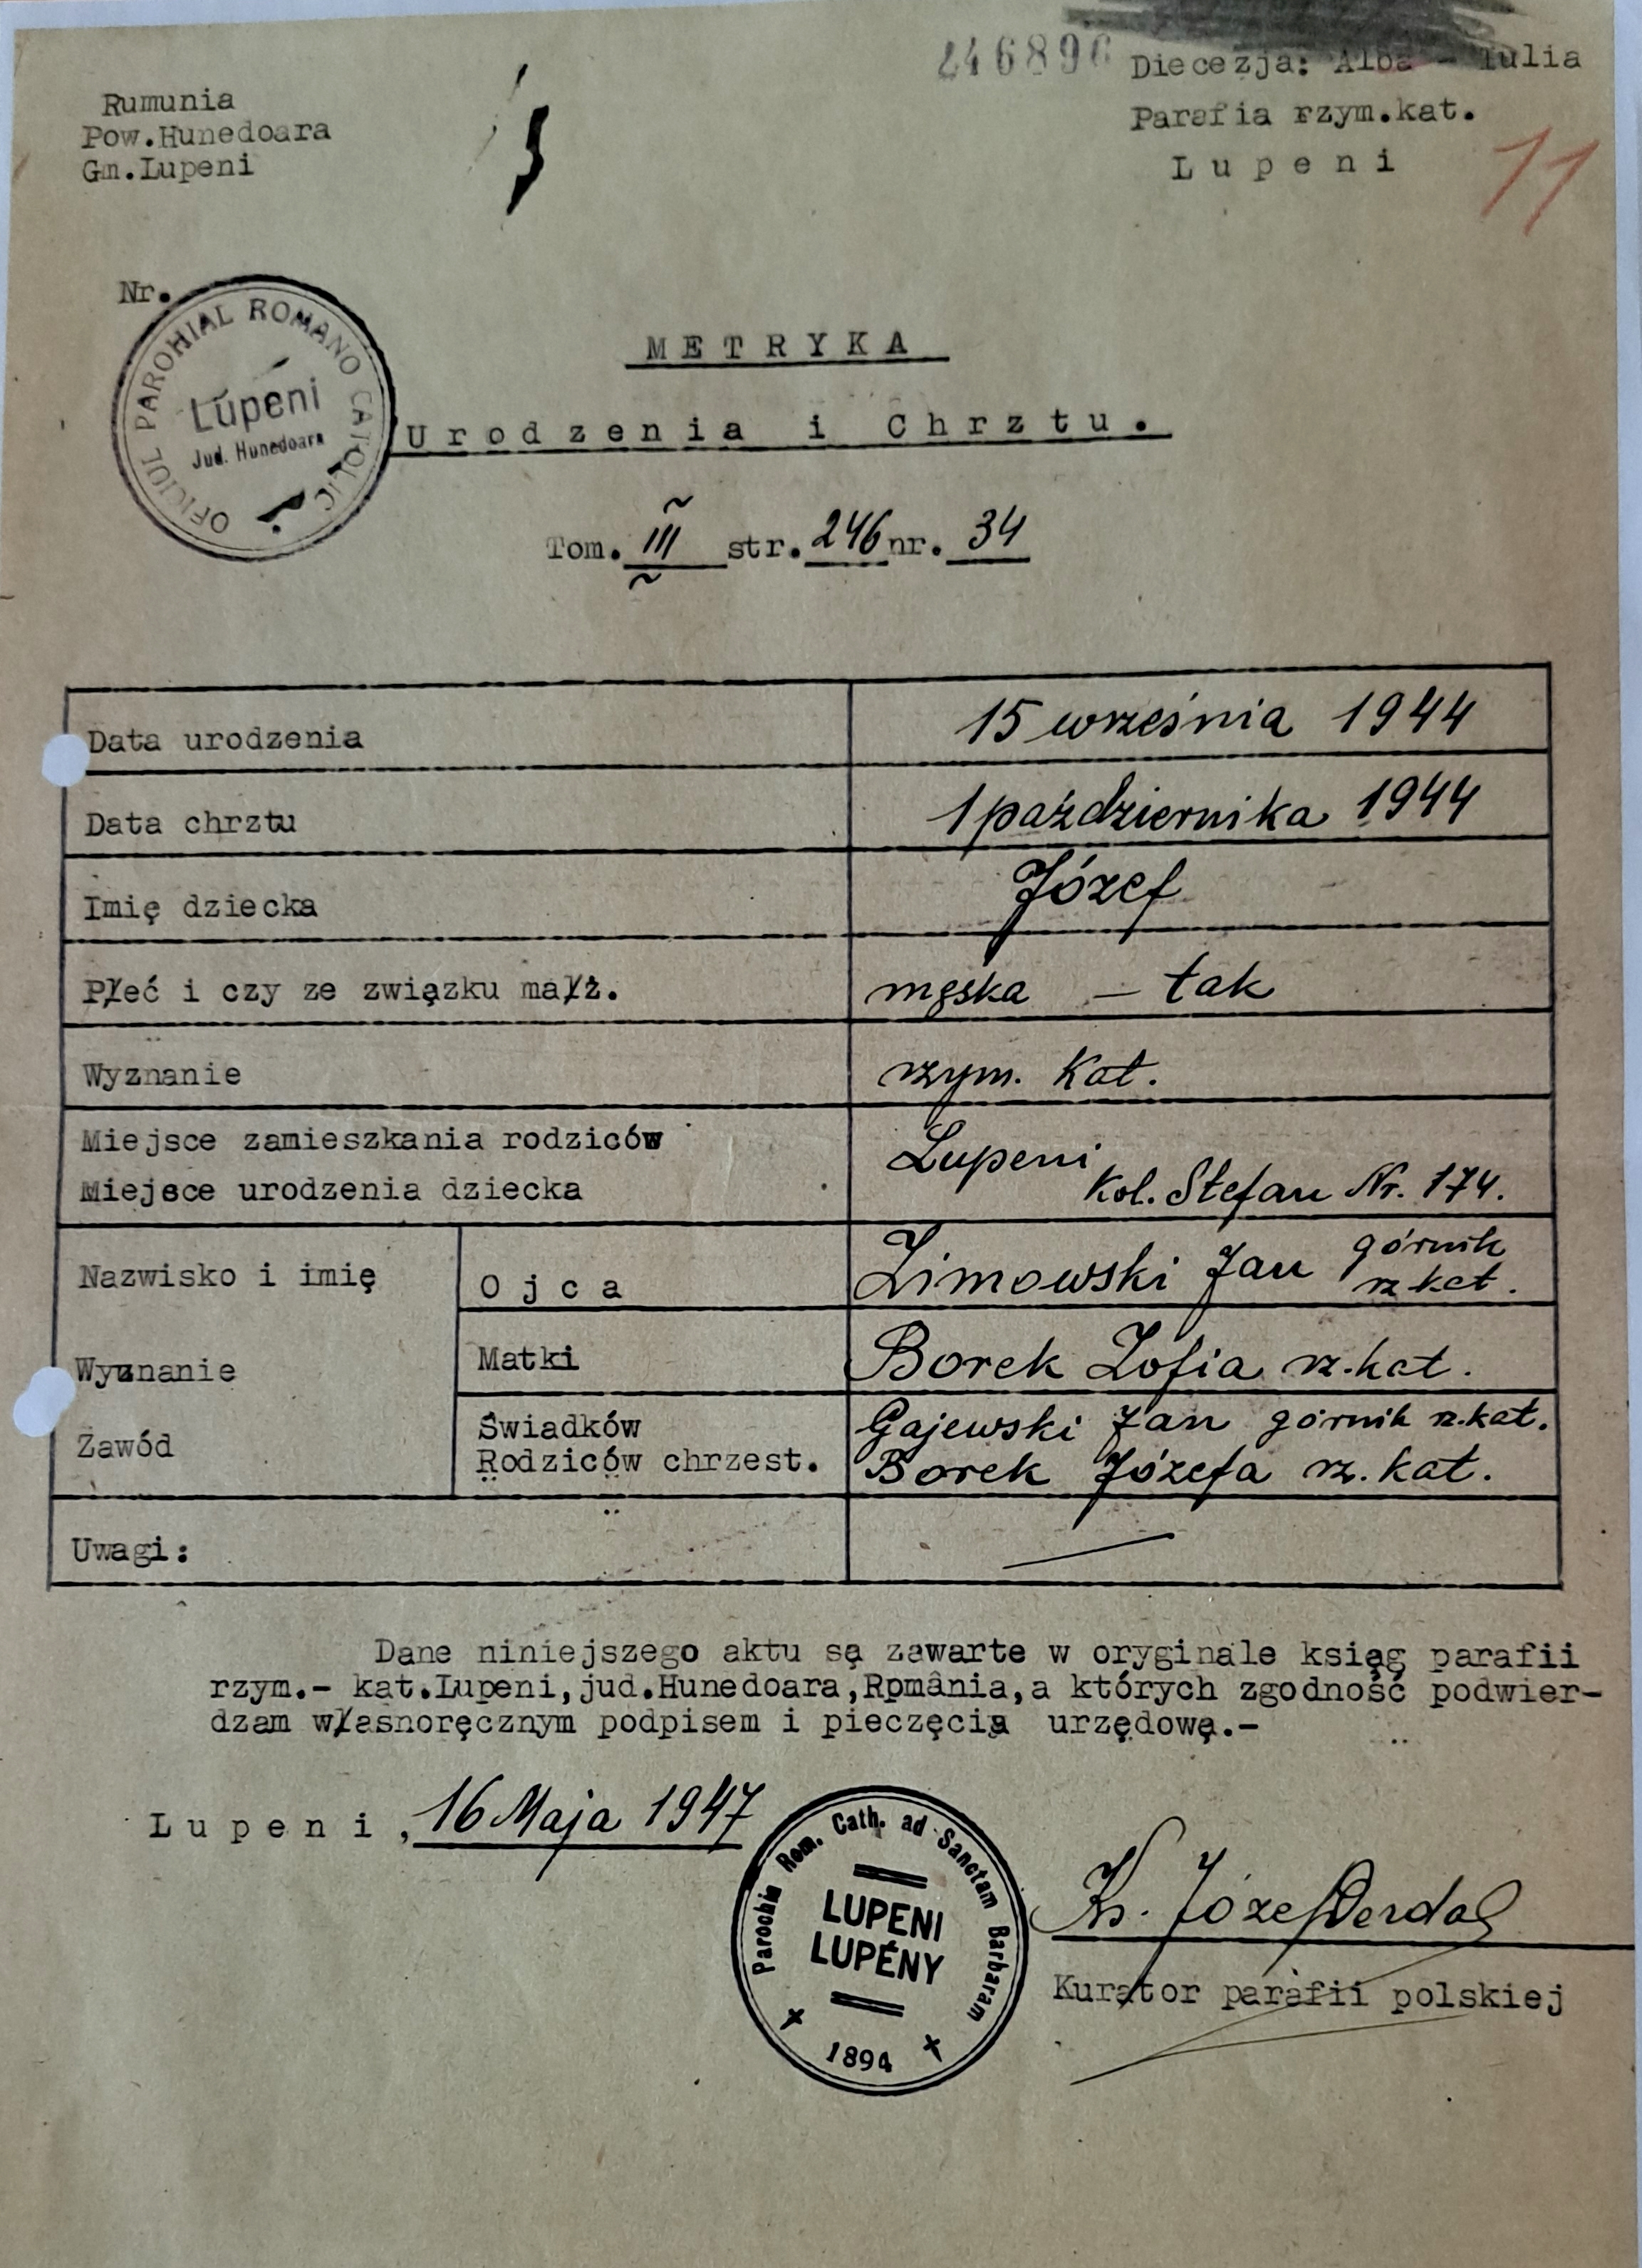 246896
Diecezja: Alba - Iulia
Parafia rzym.kat.
L u p e n i
11
Rumunia
Pow.Hunedoara
Gm.Lupeni
Nr.
OFICIUL PAROHIAL ROMANO CATOLIC
Lupeni
Jud. Hunedoara
M E T R Y K A
U r o d z e n i a i C h r z t u .
Tom. III str. 246 nr. 34
Data urodzenia 15 września 1944
Data chrztu 1 października 1944
Imię dziecka Józef
Płeć i czy ze związku małż. męska – tak
Wyznanie rzym. Kat.
Miejsce zamieszkania rodziców Lupeni
Miejsce urodzenia dziecka Kol. Stefan Nr. 174.
Nazwisko i imię O j c a Zimowski Jan górnik
rz kat.
Wyznanie Matki Borek Zofia rz.kat.
Zawód Świadków Gajewski Jan górnik rz.kat.
Rodziców chrzest. Borek Józefa rz. kat.
Uwagi: —
Dane niniejszego aktu są zawarte w oryginale ksiąg parafii
rzym.- kat.Lupeni,jud.Hunedoara,Rpmânia,a których zgodność podwier-
dzam własnoręcznym podpisem i pieczęcią urzędową.-
L u p e n i , 16 Maja 1947
Parochia Rom. Cath. ad Sanctam Barbaram
LUPENI
LUPÉNY
1894
Ks. Józef
Kurator parafii polskiej